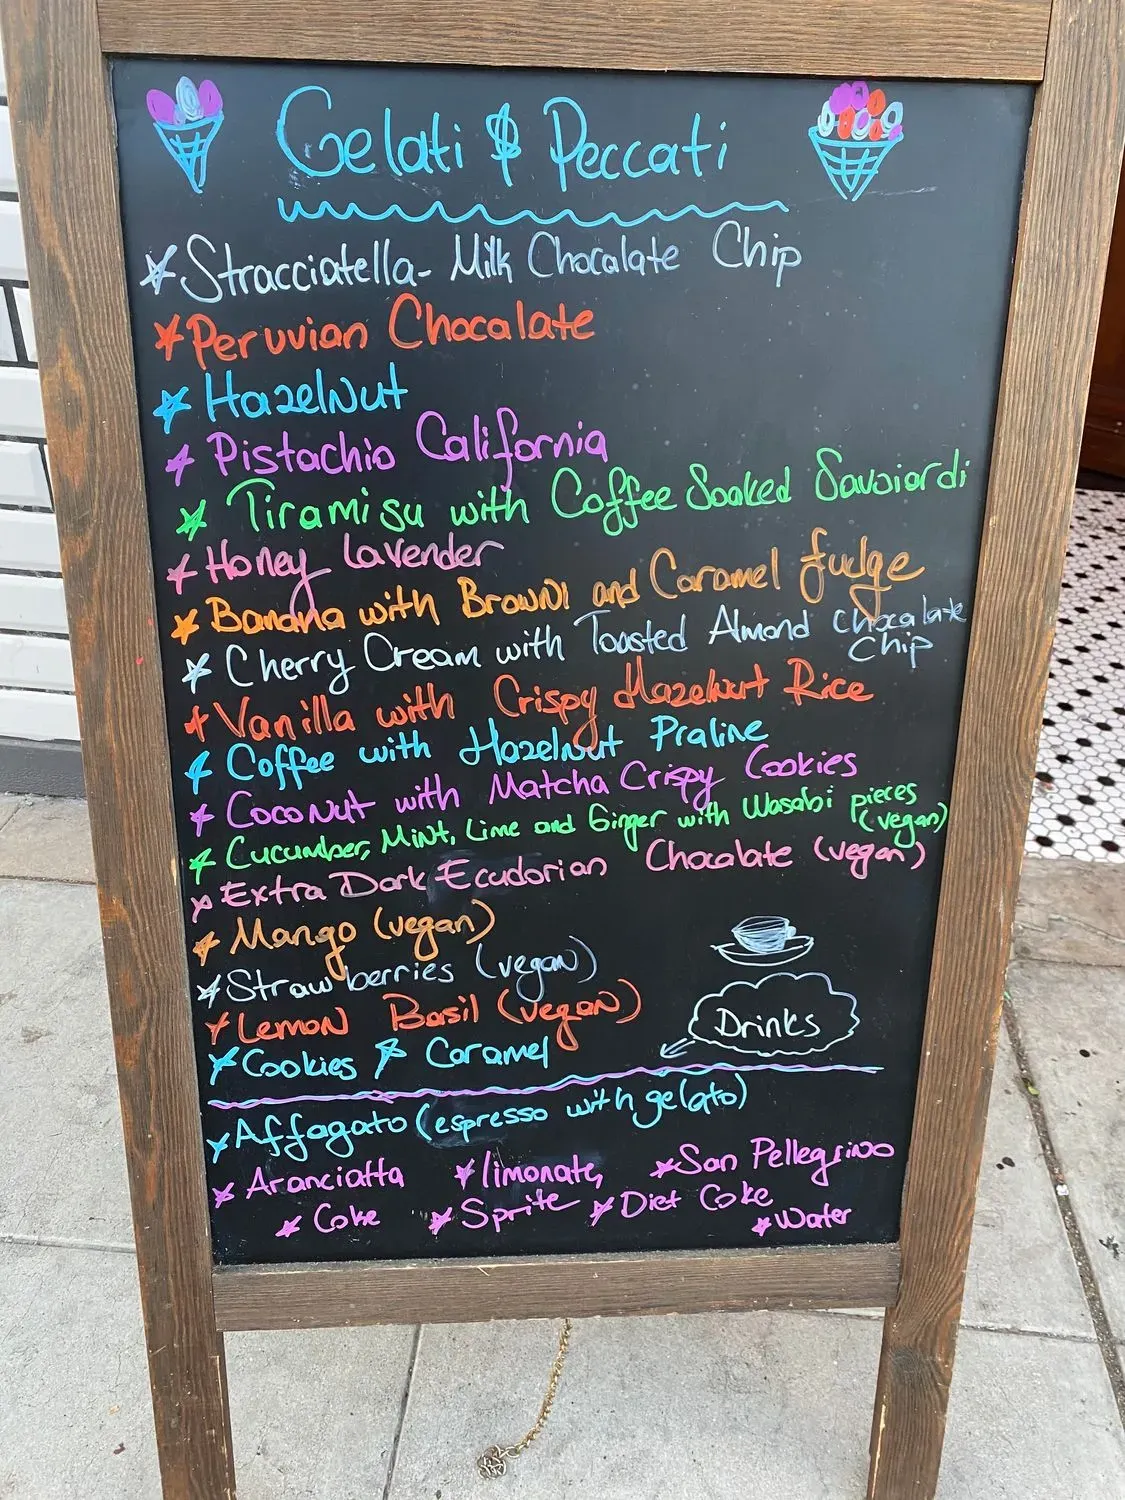 Gelati & Peccati
Stracciatella- Milk Chocalate Chip
Peruvian Chocalate
Hazelnut
Pistachio California
Tiramisu with Coffee Soaked Savoiardi
Honey Lavender
Banana with Browni and Caramel fudge
Cherry Cream with Toasted Almond chocalate
chip
Vanilla with Crispy Hazelnut Rice
Coffee with Hazelnut Praline
Coconut with Matcha Crispy Cookies
Cucumber, Mint, Lime and Ginger with Wasabi pieces
(vegan)
Extra Dark Ecudorian Chocalate (vegan)
Mango (vegan)
Strawberries (vegan)
Lemon Basil (vegan)
Drinks
Cookies & Caramel
Affagato (espresso with gelato)
Aranciatta limonate, San Pellegrino
Coke Sprite Diet Coke
Water